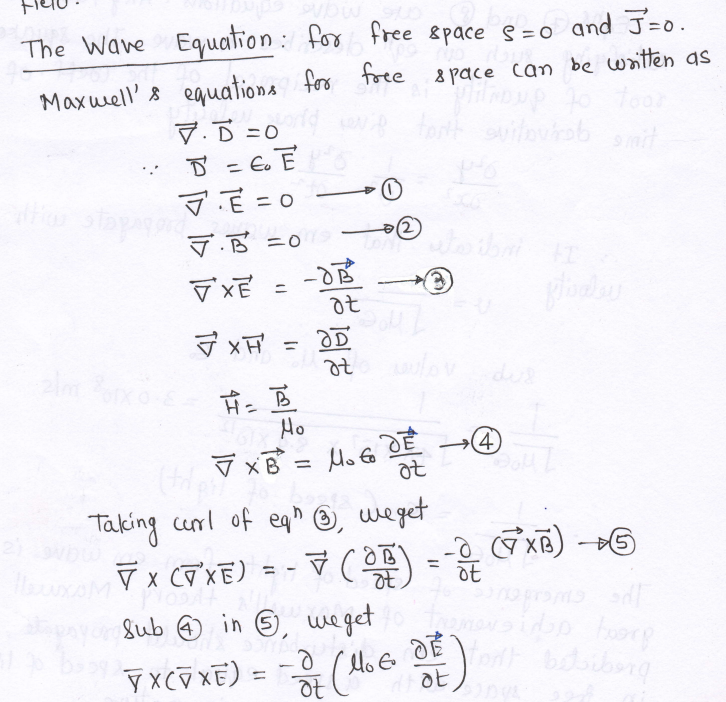 Field:
The Wave Equation: for free space ρ=0 and J⃗=0.
Maxwell's equations for free space can be written as
∇⃗ . D⃗ = 0
∵ D⃗ = ϵ₀ E⃗
∇⃗ . E⃗ = 0 → ①
∇⃗ . B⃗ = 0 → ②
∇⃗ × E⃗ = -∂B⃗/∂t → ③
∇⃗ × H⃗ = ∂D⃗/∂t
H⃗ = B⃗/μ₀
∇⃗ × B⃗ = μ₀ϵ₀ ∂E⃗/∂t → ④
Taking curl of eqⁿ ③, we get
∇⃗ × (∇⃗ × E⃗) = - ∇⃗ (∂B⃗/∂t) = -∂/∂t (∇⃗ × B⃗) → ⑤
Sub ④ in ⑤, we get
∇⃗ × (∇⃗ × E⃗) = -∂/∂t (μ₀ϵ ∂E⃗/∂t)